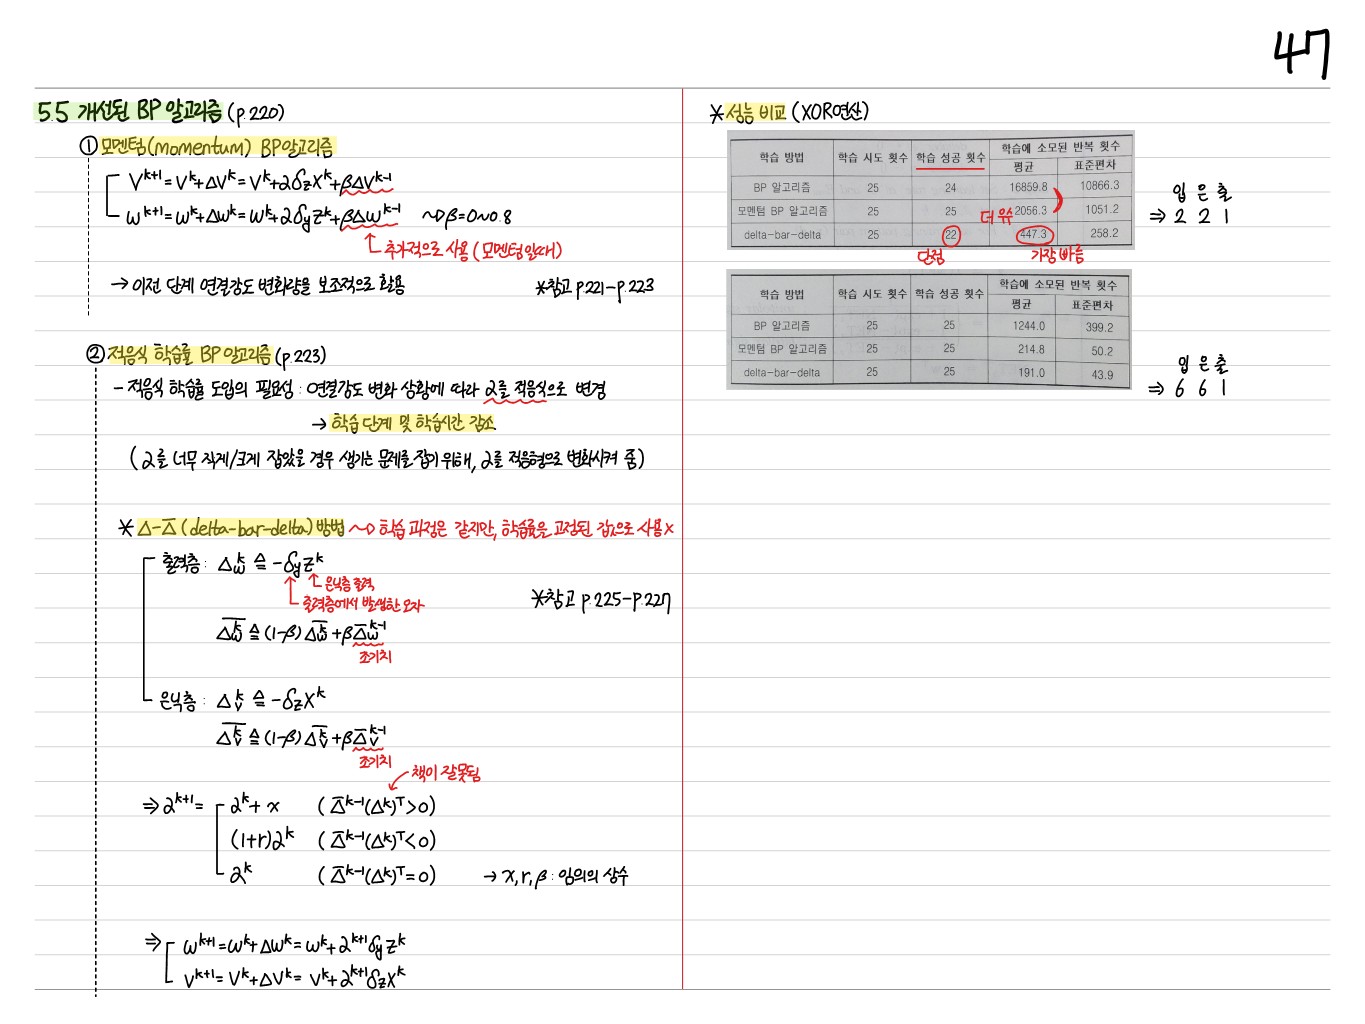 47
5.5 개선된 BP 알고리즘 (p.220)
① 모멘텀(momentum) BP알고리즘
V^{k+1} = V^k + ΔV^k = V^k + αδ_z X^k + βΔV^{k-1}
ω^{k+1} = ω^k + Δω^k = ω^k + αδ_y Z^k + βΔω^{k-1} ~> β=0~0.8
추가적으로 사용 (모멘텀일때)
→ 이전 단계 연결강도 변화량을 보조적으로 활용 *참고 p.221-p.223
② 적응식 학습률 BP 알고리즘 (p.223)
- 적응식 학습률 도입의 필요성 : 연결강도 변화 상황에 따라 α를 적응식으로 변경
→ 학습 단계 및 학습시간 감소.
(α를 너무 작게/크게 잡았을 경우 생기는 문제를 잡기 위해, α를 적응형으로 변화시켜 줌)
* Δ-Δ̄ (delta-bar-delta) 방법 ~> 학습 과정은 같지만, 학습률을 고정된 값으로 사용 x
출력층 : Δ_ω^k ≙ -δ_y Z^k
은닉층 출력
출력층에서 발생한 오차
*참고 p.225-p.227
Δ̄_ω^k ≙ (1-β) Δ̄_ω^k + βΔ̄_ω^{k-1}
초기치
은닉층 : Δ_v^k ≙ -δ_z X^k
Δ̄_v^k ≙ (1-β) Δ̄_v^k + βΔ̄_v^{k-1}
초기치
책이 잘못됨
⇒ α^{k+1} = α^k + x (Δ̄^{k-1}(Δ^k)^T > 0)
(1+r)α^k (Δ̄^{k-1}(Δ^k)^T < 0)
α^k (Δ̄^{k-1}(Δ^k)^T = 0) → x, r, β : 임의의 상수
⇒ ω^{k+1} = ω^k + Δω^k = ω^k + α^{k+1} δ_y Z^k
V^{k+1} = V^k + ΔV^k = V^k + α^{k+1} δ_z X^k
* 성능 비교 (XOR연산)
학습 방법 학습 시도 횟수 학습 성공 횟수 학습에 소모된 반복 횟수
평균 표준편차
BP 알고리즘 25 24 16859.8 10866.3
모멘텀 BP 알고리즘 25 25 2056.3 1051.2
더 유수
delta-bar-delta 25 22 447.3 258.2
단점 가장 빠름
입 은 출
⇒ 2 2 1
학습 방법 학습 시도 횟수 학습 성공 횟수 학습에 소모된 반복 횟수
평균 표준편차
BP 알고리즘 25 25 1244.0 399.2
모멘텀 BP 알고리즘 25 25 214.8 50.2
delta-bar-delta 25 25 191.0 43.9
입 은 출
⇒ 6 6 1